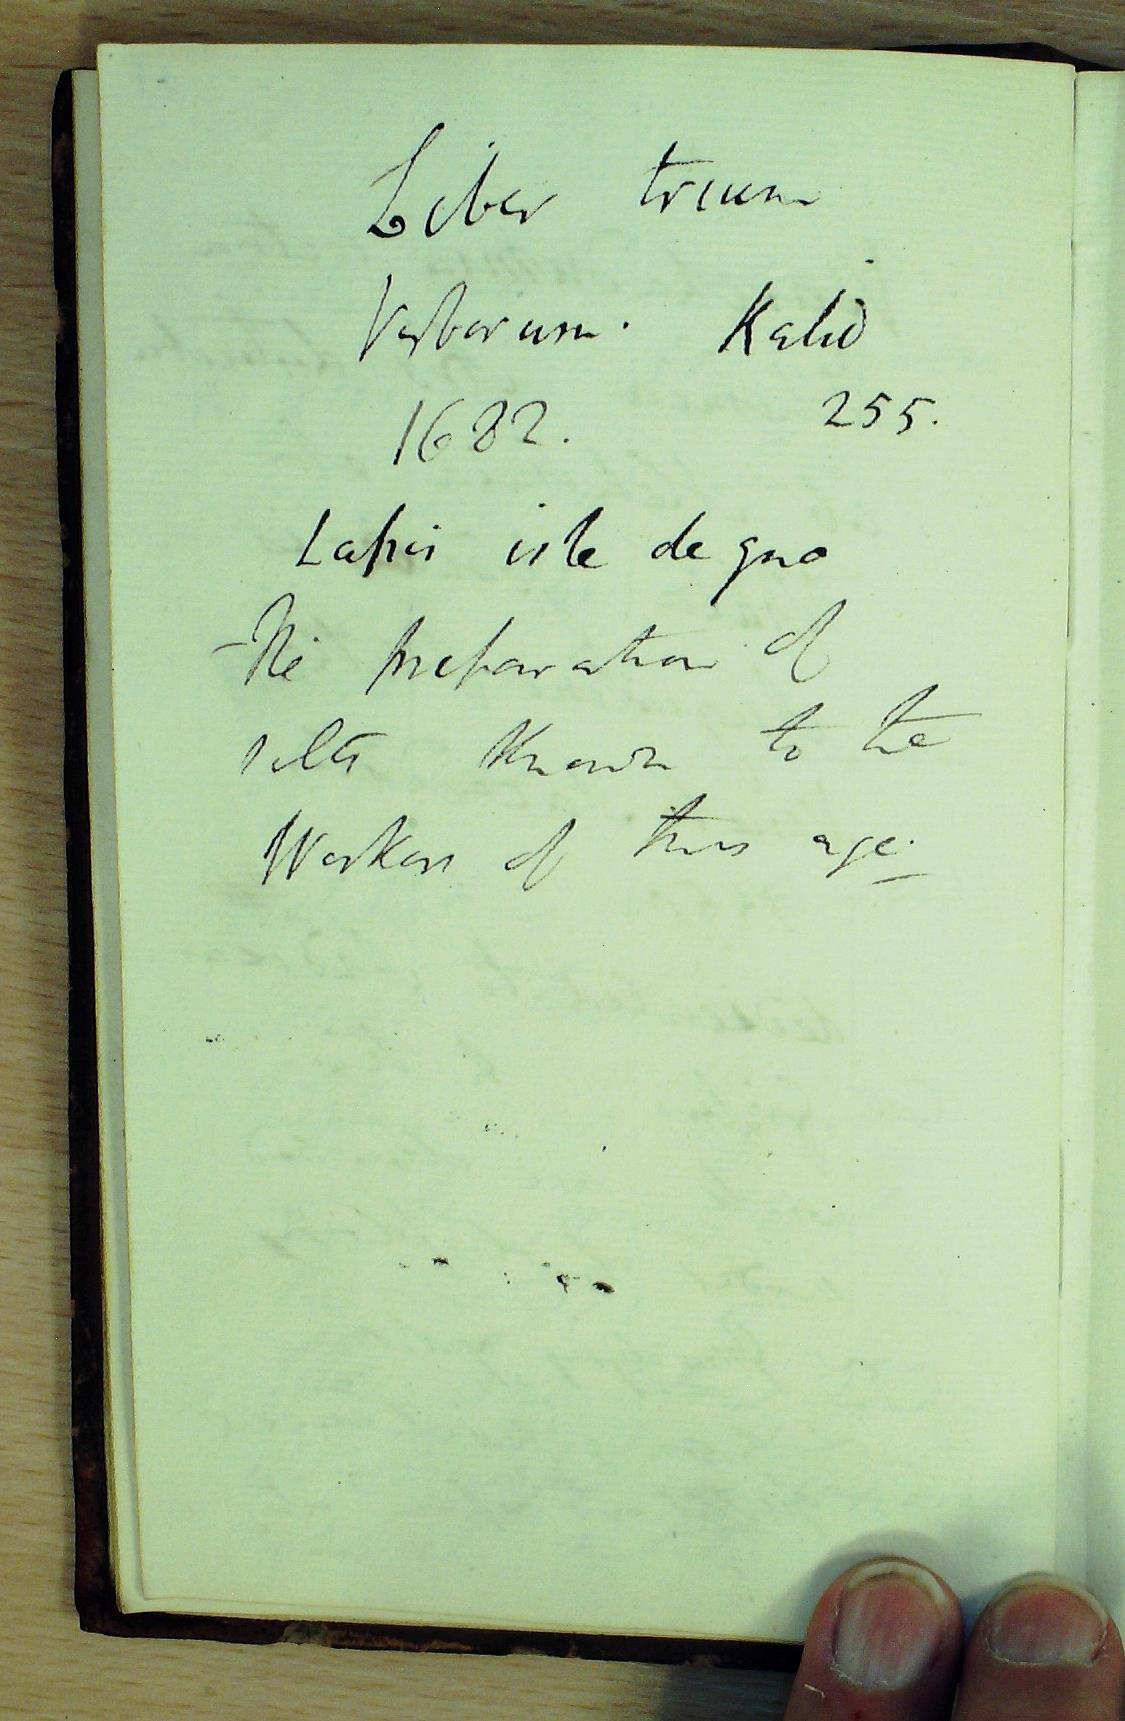 Liber trium
Verborum. Kalid
1682. 255.
Lapis iste de quo
- The preparation of
salts known to the
Workers of this age.